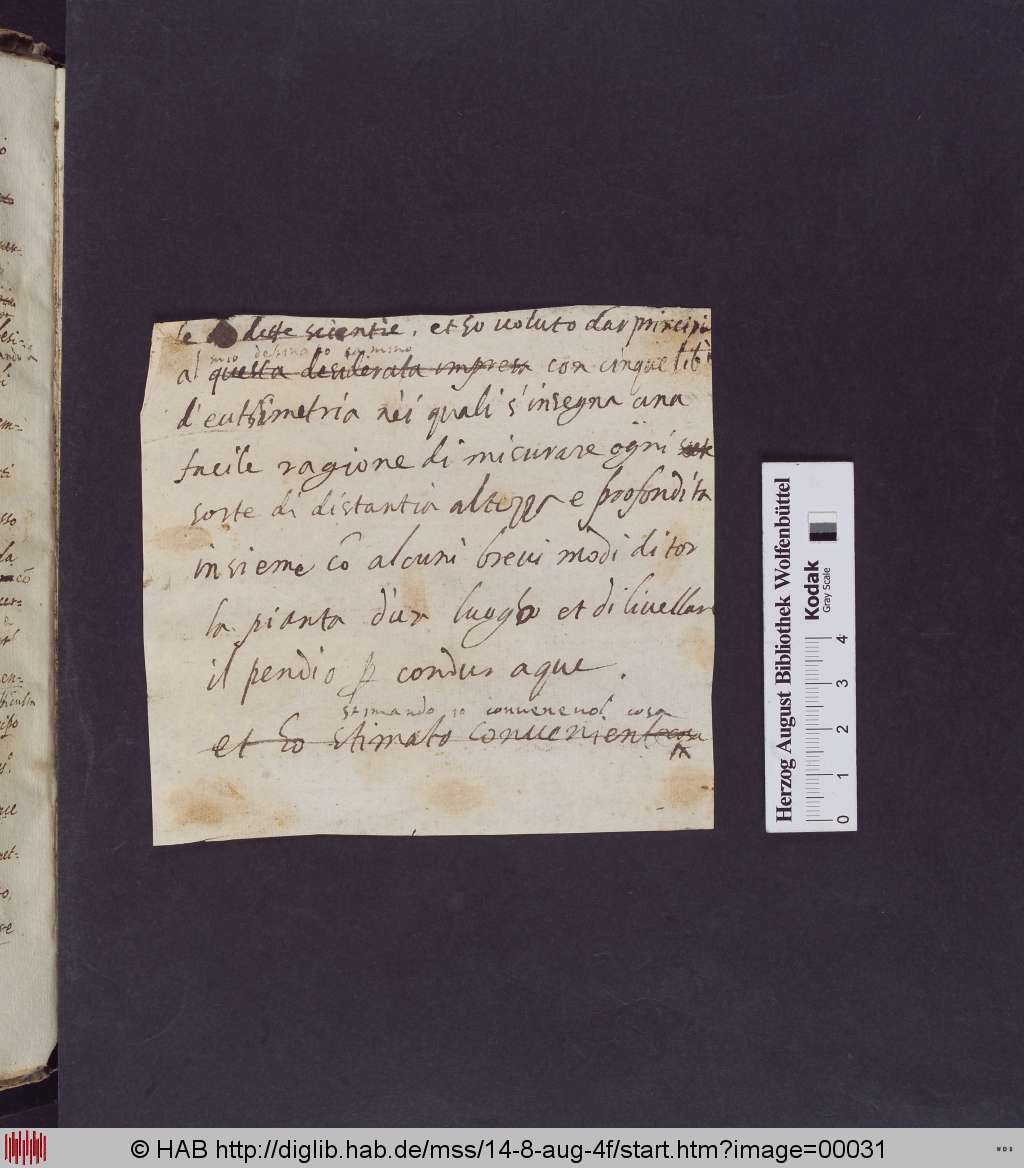 le dette scientie, et ho voluto dar principi
mio desinato camino
al questa desiderata impresa con cinque lib
d'euthimetria nei quali s'insegna una
facile ragione di misurare ogni
sorte di distantia altezza e profondita
insieme cõ alcuni brevi modi di tor
la pianta d'un luogho et di livellare
il pendio ꝑ condur aque.
stimando io convenevol cosa
et ho stimato convenient cosa
Herzog August Bibliothek Wolfenbüttel
Kodak
Gray Scale
0 1 2 3 4
© HAB http://diglib.hab.de/mss/14-8-aug-4f/start.htm?image=00031